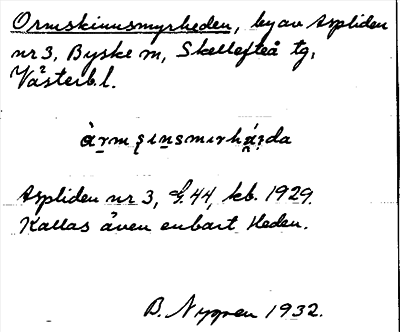 Ormskinnsmyrheden, by av Aspliden
nr 3, Byske sn, Skellefteå tg,
Västerb. l.
àrmʂɩnsmɩrhá̯ɪda
Aspliden nr 3, G. 44, kb. 1929.
Kallas även enbart Heden.
B. Nygren 1932.